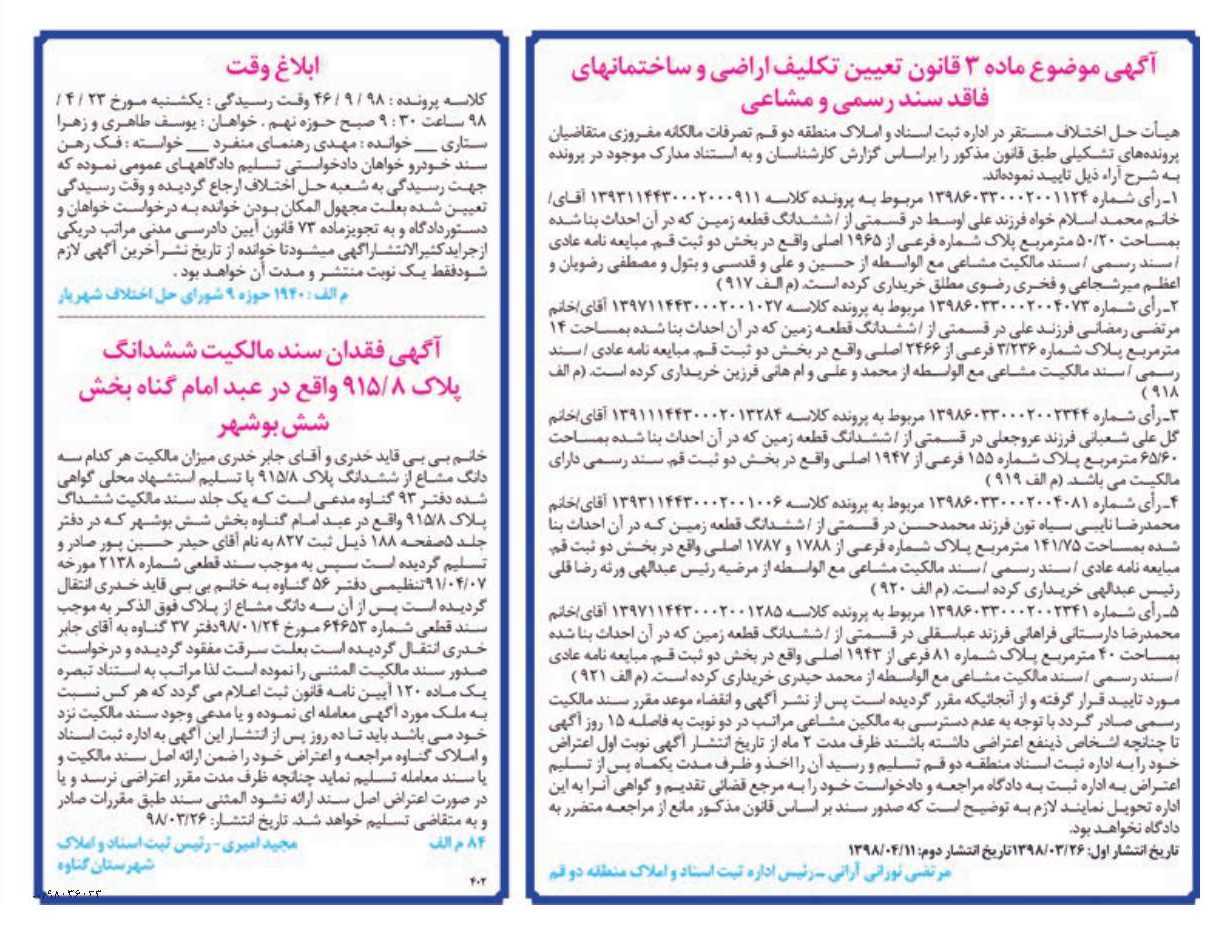 آگهی موضوع ماده ۳ قانون تعیین تکلیف اراضی و ساختمانهای
فاقد سند رسمی و مشاعی
هیـأت حـل اختـلاف مسـتقر در اداره ثبت اسـناد و امـلاک منطقه دو قـم تصرفات مالکانه مفـروزی متقاضیان
پرونده‌های تشـکیلی طبق قانون مذکور را براسـاس گزارش کارشناسـان و به اسـتناد مدارک موجود در پرونده
بـه شـرح آراء ذیل تایید نموده‌اند.
۱ـ رأی شـماره ۱۳۹۸۶۰۳۳۰۰۰۲۰۰۱۱۲۴ مربـوط بـه پرونده کلاسـه ۱۳۹۳۱۱۴۴۳۰۰۰۲۰۰۰۹۱۱ آقـای/
خانـم محمـد اسـلام خواه فرزند علی اوسـط در قسـمتی از / ششـدانگ قطعه زمیـن که در آن احداث بنا شـده
بمسـاحت ۵۰/۲۰ مترمربـع پلاک شـماره فرعـی از ۱۹۶۵ اصلی واقـع در بخش دو ثبت قـم. مبایعه نامه عادی
/ سـند رسـمی / سـند مالکیت مشـاعی مع الواسـطه از حسـین و علی و قدسـی و بتول و مصطفی رضویان و
اعظـم میرشـجاعی و فخـری رضوی مطلق خریداری کرده اسـت. (م الـف ۹۱۷)
۲ـ رأی شماره ۱۳۹۸۶۰۳۳۰۰۰۲۰۰۴۰۷۳ مربوط به پرونده کلاسـه ۱۳۹۷۱۱۴۴۳۰۰۰۲۰۰۱۰۲۷ آقای/خانم
مرتضـی رمضانـی فرزنـد علی در قسـمتی از / ششـدانگ قطعـه زمین که در آن احداث بنا شـده بمسـاحت ۱۴
مترمربـع پـلاک شـماره ۳/۲۳۶ فرعـی از ۲۴۶۶ اصلـی واقـع در بخـش دو ثبـت قـم. مبایعه نامه عادی / سـند
رسـمی / سـند مالکیـت مشـاعی مع الواسـطه از محمد و علـی و ام هانی فرزین خریـداری کرده اسـت. (م الف
۹۱۸ )
۳ـ رأی شـماره ۱۳۹۸۶۰۳۳۰۰۰۲۰۰۲۳۴۴ مربوط به پرونده کلاسـه ۱۳۹۱۱۱۴۴۳۰۰۰۲۰۱۳۲۸۴ آقای/خانم
گل علی شـعبانی فرزند عروجعلی در قسـمتی از / ششـدانگ قطعه زمین که در آن احداث بنا شـده بمسـاحت
۶۵/۶۰ مترمربع پـلاک شـماره ۱۵۵ فرعـی از ۱۹۴۷ اصلـی واقع در بخـش دو ثبت قم. سـند رسـمی دارای
مالکیـت می باشـد. (م الف ۹۱۹ )
۴ـ رأی شـماره ۱۳۹۸۶۰۳۳۰۰۰۲۰۰۴۰۸۱ مربوط به پرونده کلاسـه ۱۳۹۳۱۱۴۴۳۰۰۰۲۰۰۱۰۰۶ آقای/خانم
محمدرضـا نایبـی سـیاه تون فرزند محمدحسـن در قسـمتی از / ششـدانگ قطعه زمیـن کـه در آن احداث بنا
شـده بمسـاحت ۱۴۱/۷۵ مترمربـع پـلاک شـماره فرعـی از ۱۷۸۸ و ۱۷۸۷ اصلـی واقع در بخـش دو ثبت قم.
مبایعه نامه عادی / سـند رسـمی / سـند مالکیت مشـاعی مع الواسـطه از مرضیه رئیس عبدالهی ورثه رضا قلی
رئیـس عبدالهی خریـداری کرده اسـت. (م الف ۹۲۰ )
۵ـ رأی شـماره ۱۳۹۸۶۰۳۳۰۰۰۲۰۰۲۳۴۱ مربوط به پرونده کلاسـه ۱۳۹۷۱۱۴۴۳۰۰۰۲۰۰۱۲۸۵ آقای/خانم
محمدرضا دارسـتانی فراهانی فرزند عباسـقلی در قسـمتی از / ششـدانگ قطعه زمین که در آن احداث بنا شـده
بمسـاحت ۴۰ مترمربـع پـلاک شـماره ۸۱ فرعی از ۱۹۴۳ اصلـی واقع در بخش دو ثبت قـم. مبایعه نامه عادی
/ سـند رسـمی / سـند مالکیت مشـاعی مع الواسـطه از محمد حیدری خریداری کرده اسـت. (م الف ۹۲۱ )
مـورد تاییـد قـرار گرفته و از آنجائیکه مقرر گردیده اسـت پـس از نشـر آگهی و انقضاء موعد مقرر سـند مالکیت
رسـمی صادر گـردد با توجه به عدم دسترسـی به مالکین مشـاعی مراتب در دو نوبت به فاصلـه ۱۵ روز آگهی
تـا چنانچه اشـخاص ذینفـع اعتراضی داشـته باشـند ظرف مدت ۲ ماه از تاریخ انتشـار آگهی نوبـت اول اعتراض
خـود را بـه اداره ثبـت اسـناد منطقـه دو قـم تسـلیم و رسـید آن را اخـذ و ظـرف مـدت یکمـاه پس از تسـلیم
اعتـراض بـه اداره ثبـت بـه دادگاه مراجعـه و دادخواسـت خـود را بـه مرجع قضائی تقدیـم و گواهی آنـرا به این
اداره تحویـل نماینـد لازم بـه توضیـح اسـت که صدور سـند بر اسـاس قانون مذکـور مانع از مراجعـه متضرر به
دادگاه نخواهـد بود.
تاریخ انتشار اول: ۱۳۹۸/۰۳/۲۶تاریخ انتشار دوم: ۱۳۹۸/۰۴/۱۱
مرتضی نورانی آرانی ـ رئیس اداره ثبت اسناد و املاک منطقه دو قم
ابلاغ وقت
کلاسـه پرونـده : ۹۸ / ۹ / ۴۶ وقـت رسـیدگی : یکشـنبه مـورخ ۲۳ / ۴ /
۹۸ سـاعت ۳۰ : ۹ صبـح حـوزه نهـم . خواهـان : یوسـف طاهـری و زهـرا
سـتاری __ خوانـده : مهـدی رهنمـای منفـرد __ خواسـته : فـک رهـن
سـند خـودرو خواهان دادخواسـتی تسـلیم دادگاههـای عمومی نمـوده که
جهـت رسـیدگی به شـعبه حـل اختـلاف ارجاع گردیـده و وقت رسـیدگی
تعییـن شـده بعلـت مجهـول المکان بـودن خوانده بـه درخواسـت خواهان و
دسـتوردادگاه و به تجویزماده ۷۳ قانون آیین دادرسـی مدنی مراتب دریکی
ازجرایدکثیرالانتشـاراگهی میشـودتا خوانده از تاریخ نشـرآخرین آگهی لازم
شـودفقط یـک نوبت منتشـر و مـدت آن خواهـد بود .
م الف : ۱۹۴۰ حوزه ۹ شورای حل اختلاف شهریار
آگهی فقدان سند مالکیت ششدانگ
پلاک ۹۱۵/۸ واقع در عبد امام گناه بخش
شش بوشهر
خانـم بـی بـی قایـد خدری و آقـای جابر خدری میزان مالکیت هر کدام سـه
دانگ مشـاع از ششـدانگ پلاک ۹۱۵/۸ با تسـلیم استشـهاد محلی گواهی
شده دفتـر ۹۳ گنـاوه مدعـی اسـت کـه یک جلد سـند مالکیت ششـداگ
پـلاک ۹۱۵/۸ واقـع در عبـد امـام گنـاوه بخش شـش بوشـهر کـه در دفتر
جلـد ۵صفحـه ۱۸۸ ذیـل ثبت ۸۲۷ به نام آقای حیدر حسـین پـور صادر و
تسـلیم گردیده اسـت سـپس به موجب سـند قطعـی شـماره ۲۱۳۸ مورخه
۹۱/۰۴/۰۷تنظیمـی دفتـر ۵۶ گنـاوه بـه خانـم بـی بـی قاید خـدری انتقال
گردیـده اسـت پـس از آن سـه دانگ مشـاع از پـلاک فوق الذکـر به موجب
سـند قطعی شـماره ۶۴۶۵۳ مـورخ ۹۸/۰۱/۲۴دفتر ۳۷ گنـاوه به آقای جابر
خـدری انتقـال گردیـده اسـت بعلـت سـرقت مفقود گردیـده و درخواسـت
صـدور سـند مالکیـت المثنـی را نمـوده اسـت لذا مراتـب به اسـتناد تبصره
یـک مـاده ۱۲۰ آییـن نامـه قانون ثبت اعـلام می گردد که هر کس نسـبت
بـه ملـک مورد آگهـی معاملـه ای نمـوده و یا مدعـی وجود سـند مالکیت نزد
خـود مـی باشـد بایـد تـا ده روز پـس از انتشـار این آگهـی به اداره ثبت اسـناد
و امـلاک گنـاوه مراجعـه و اعتراض خـود را ضمن ارائه اصل سـند مالکیت و
یا سـند معامله تسـلیم نماید چنانچه ظرف مدت مقـرر اعتراضی نرسـد و یا
در صورت اعتراض اصل سـند ارائه نشـود المثنی سـند طبق مقررات صادر
و به متقاضـی تسـلیم خواهد شـد. تاریخ انتشـار: ۹۸/۰۳/۲۶
۸۴ م الف مجید امیری - رئیس ثبت اسناد و املاک
شهرستان گناوه
۴۰۲